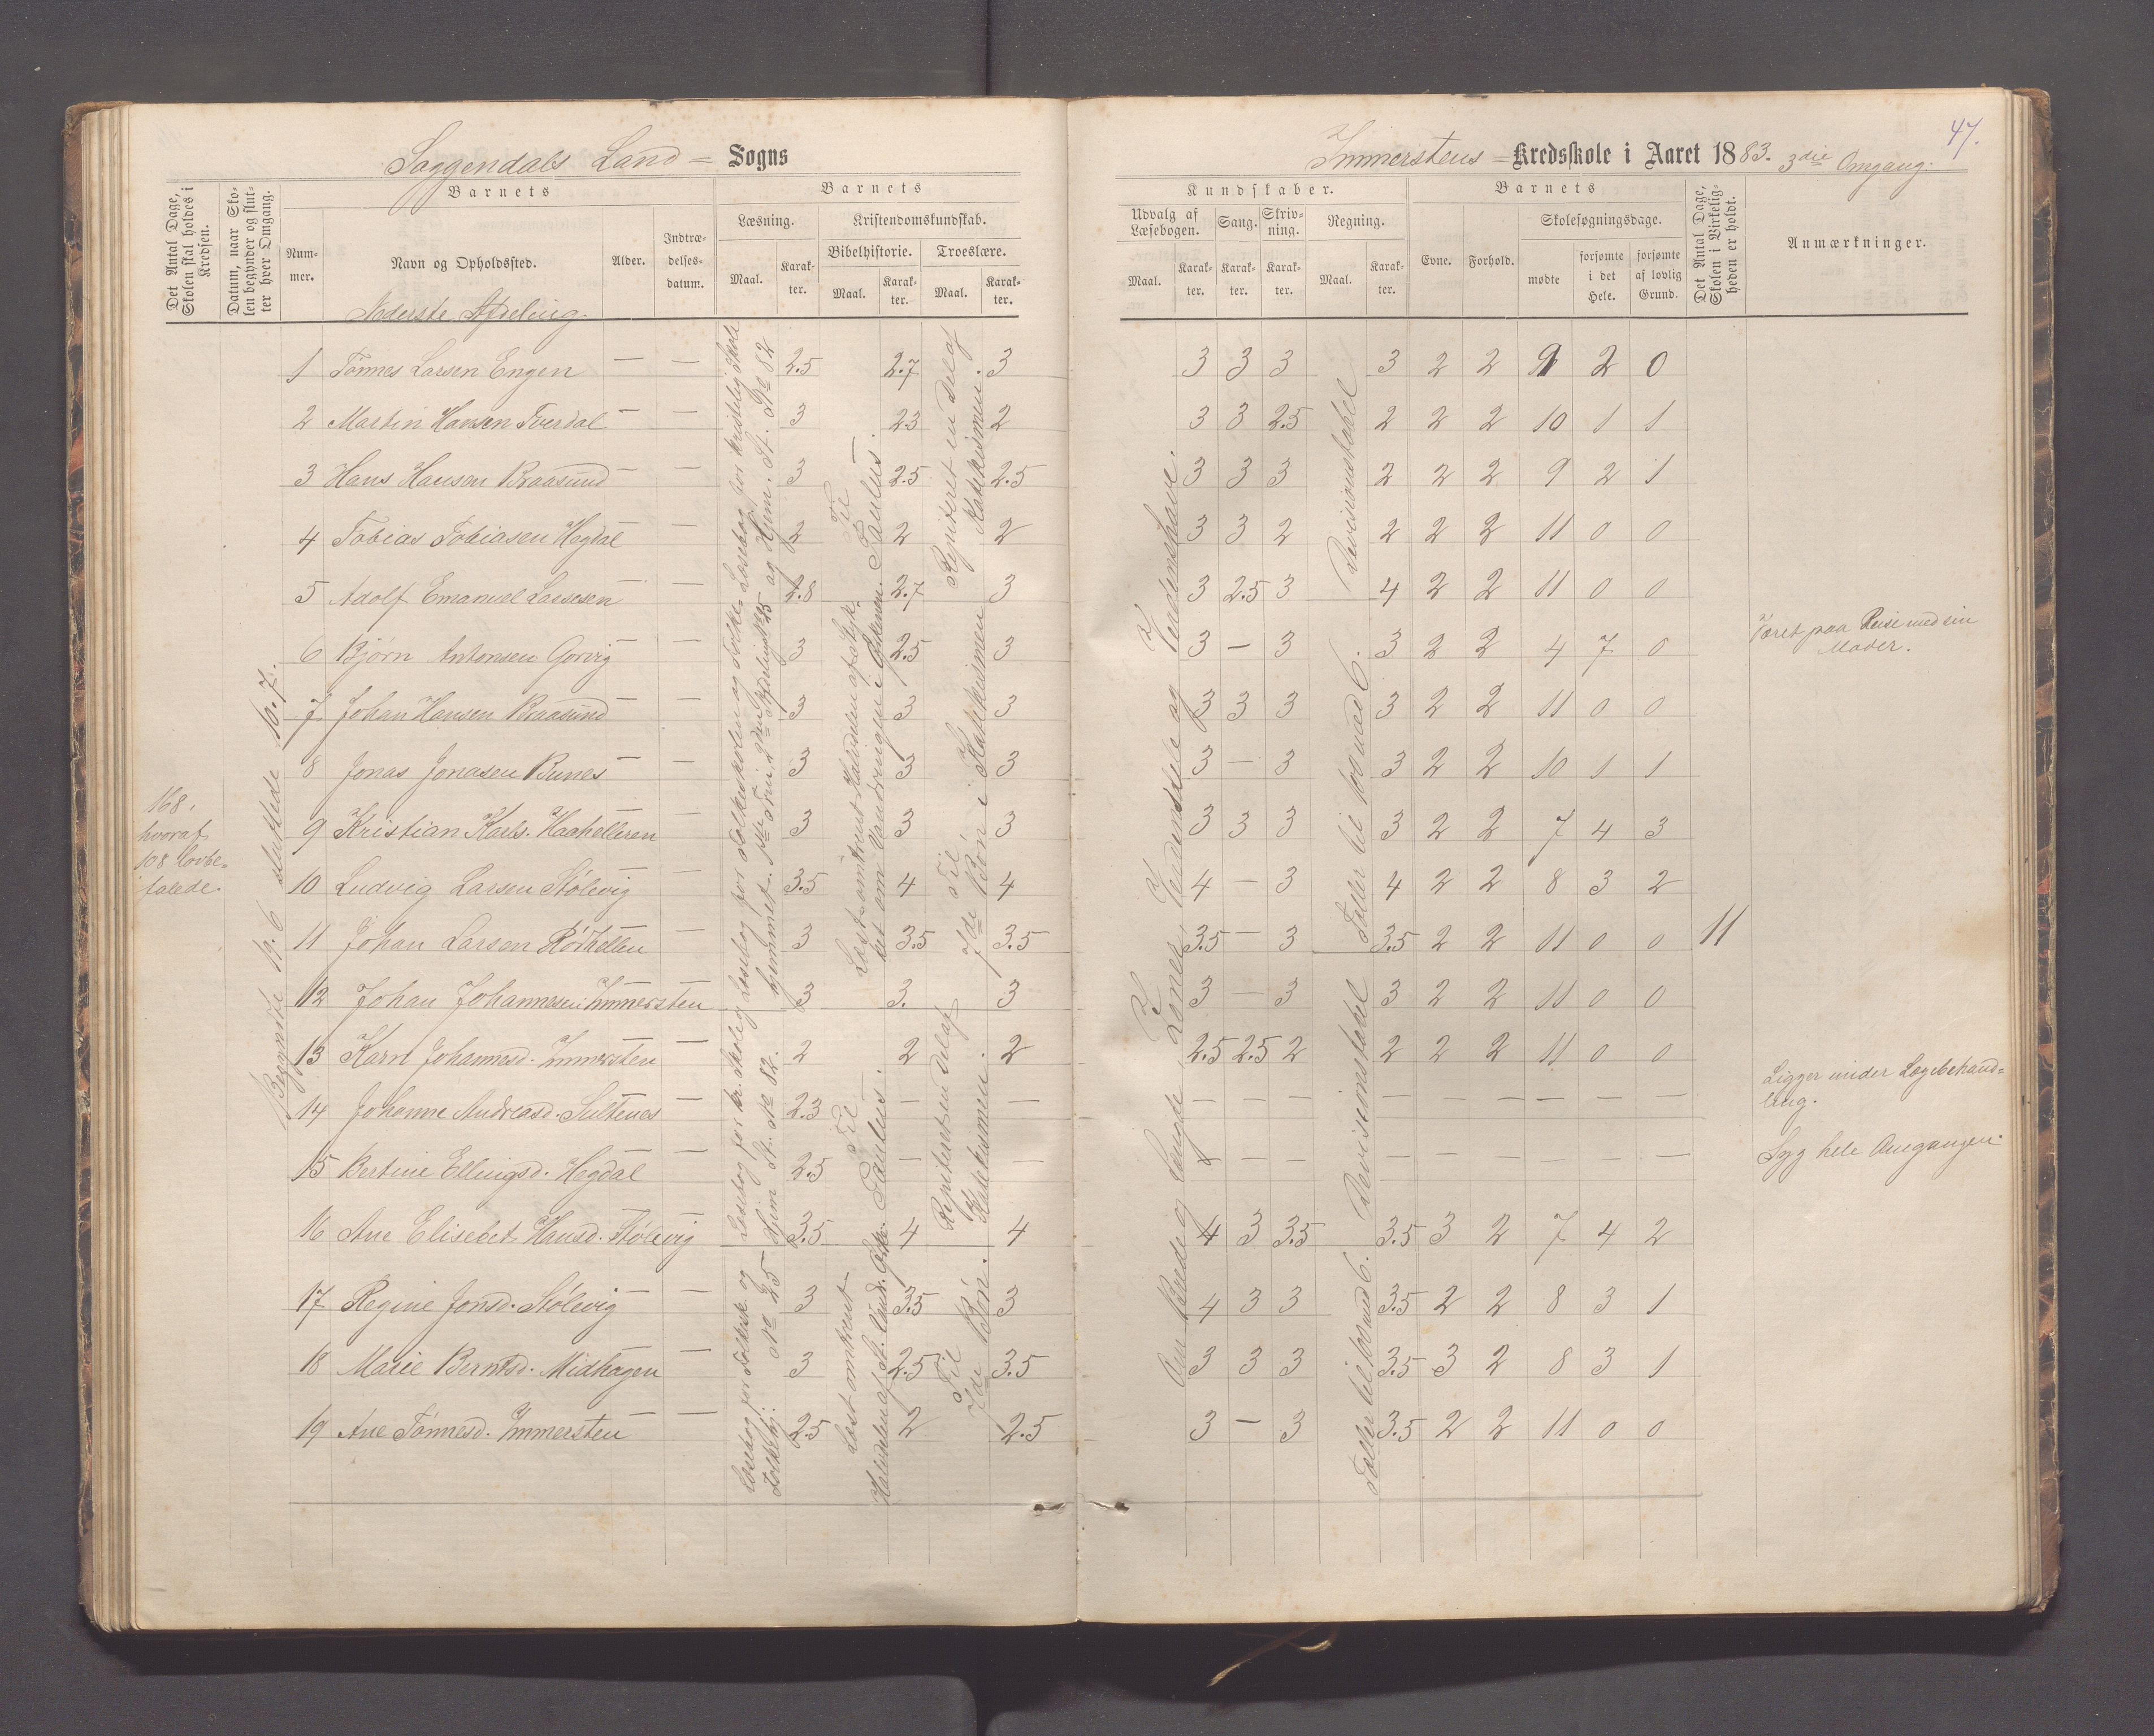 Soggendals Land = Sogns
Immerstens = Kredsskole i Aaret 1883. 3die Omgang.
47.
Det Antal Dage, Skolen skal holdes i Kredsen.
Datum, naar Skolen begynder og slutter hver Omgang.
Barnets
Nummer.
Navn og Opholdssted.
Alder.
Indtrædelsesdatum.
Barnets
Læsning.
Maal.
Karakter.
Kristendomskundskab.
Bibelhistorie.
Maal.
Karakter.
Troeslære.
Maal.
Karakter.
Kundskaber.
Udvalg af Læsebogen.
Maal.
Karakter.
Sang.
Karakter.
Skrivning.
Karakter.
Regning.
Maal.
Karakter.
Barnets
Evne.
Forhold.
Skolesøgningsdage.
mødte
forsømte i det Hele.
forsømte af lovlig Grund.
Det Antal Dage, Skolen i Virkeligheden er holdt.
Anmærkninger.
Nederste Afdeling.
1 Tønnes Larsen Engen — — 2.5 2.7 3 3 3 3 3 2 2 9 2 0
2 Martin Hansen Tverdal — — 3 2.3 2 3 3 2.5 2 2 2 10 1 1
3 Hans Hansen Braasund — — 3 2.5 2.5 3 3 3 2 2 2 9 2 1
4 Tobias Tobiasen Hegdal — — 2 2 2 3 3 2 2 2 2 11 0 0
5 Adolf Emanuel Lassesen — — 2.8 2.7 3 3 2.5 3 4 2 2 11 0 0
6 Bjørn Antonsen Gorvig — — 3 2.5 3 3 — 3 3 2 2 4 7 0 Været paa Reise med sin
Moder.
7 Johan Hansen Braasund — — 3 3 3 3 3 3 3 2 2 11 0 0
8 Jonas Jonasen Bunes — — 3 3 3 3 — 3 3 2 2 10 1 1
9 Kristian Karls. Haahelleren — — 3 3 3 3 3 3 3 2 2 7 4 3
10 Ludvig Larsen Stølevig — — 3.5 4 4 4 — 3 4 2 2 8 3 2
11 Johan Larsen Rødhellen — — 3 3.5 3.5 3.5 — 3 3.5 2 2 11 0 0 11
12 Johan Johannesen Immersten 3 3. 3 3 — 3 3 2 2 11 0 0
13 Karn Johannesd. Immersten — 2 2 2 2.5 2.5 2 2 2 2 11 0 0
14 Johanne Andreasd. Sultenes — — 2.3 — — — — — — — — — — — Ligger under Lægebehand=
ling.
15 Bertine Ellingsd. Hegdal — — 2.5 — — — — — — — — — — Syg hele Omgangen.
16 Ane Elisebet Hansd. Stølevig — 3.5 4 4 4 3 3.5 3.5 3 2 7 4 2
17 Regine Jonsd. Stølevig — — 3 3.5 3 4 3 3 3.5 2 2 8 3 1
18 Marie Berntsd. Midhagen — — 3 2.5 3.5 3 3 3 3.5 3 2 8 3 1
19 Ane Tønnesd. Immersten — — 2.5 2 2.5 3 — 3 3.5 2 2 11 0 0
168,
hvoraf
108 lovbe=
falede.
Begyndte 19.6 sluttede 10.7.
Læsebog for Folkeskolen og Folke-
Læsebog for kristelig Skole
og Hjem. St. No 82
Læst omtrent Halvdelen af Styk-
ket om Vandringen i Ørkenen.
Til
Paulus.
Til
7de Bøn i Katekismen
Repeteret en Del af
Katekismen.
Læsebog for kr. Skole og
Hjem St. No 82.
Læst omtrent
Halvdelen af St. Vand. Ørk.
Til
Paulus.
Til
7de Bøn.
Repeteret en Del af
Katekismen.
Læsebog for Folkesk. og
Folkehj. No 25
Om Brede og Længde, Zoner, Verdensdele og Verdenshave.
Revisionstabel
Tæller til 100 med 6.
Revisionstabel
Tæller til 100 med 6.